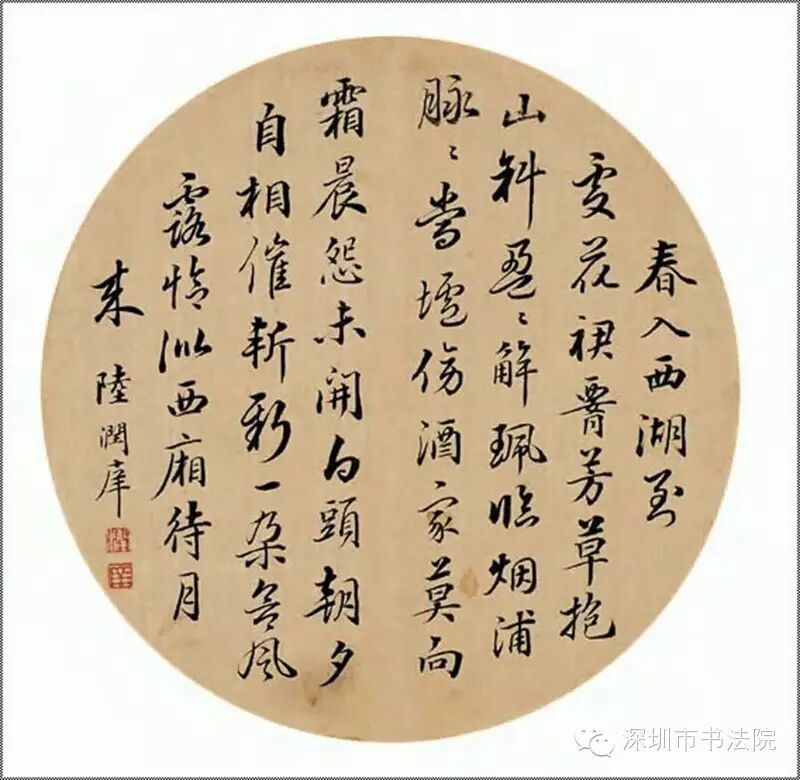 春入西湖到
處花裙腰芳草抱
山斜盈〻解珮臨烟浦
脉〻當壚傍酒家莫向
霜晨怨未開白頭朝夕
自相催斬新一朵含風
露恰似西廂待月
来 陸潤庠
深圳市书法院